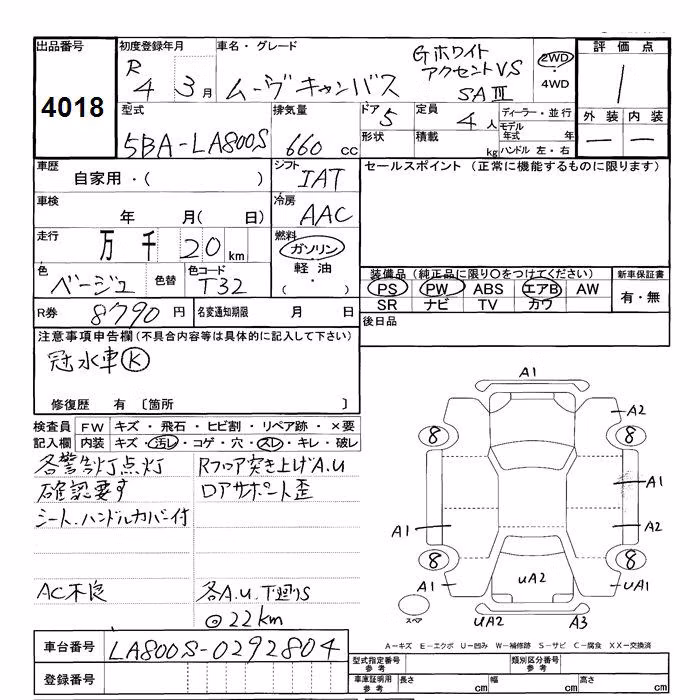 出品番号
4018
初度登録年月
R 4 3月
車名・グレード
ムーヴキャンバス
Gホワイト
アクセントVS
SAⅢ
2WD
・
4WD
評価点
1
外装 内装
一 一
型式
5BA-LA800S
排気量
660 cc
ドア 5
形状
定員 4人
積載 kg
ディーラー・並行
モデル年式 年
ハンドル 左・右
車歴
自家用・( )
シフト
IAT
車検
年 月( 日)
冷房
AAC
走行
万 千 20 km
燃料
ガソリン
軽油
( ・ )
色
ベージュ
色替
色コード
T32
R券 8790 円
名変通知期限 月 日
セールスポイント (正常に機能するものに限ります)
装備品 (純正品に限り○をつけてください)
PS PW ABS エアB AW
SR ナビ TV カワ
新車保証書
有・無
後日品
注意事項申告欄(不具合内容等は具体的に記入して下さい)
冠水車 K
修復歴 有 〔箇所 〕
検査員 FW キズ・飛石・ヒビ割・リペア跡・×要
記入欄 内装 キズ・汚レ・コゲ・穴・スレ・キレ・破レ
各警告灯点灯
確認要す
シート、ハンドルカバー付
AC不良
Rフロア突き上げA.U
ロアサポート歪
各A.U.下廻りS
@22km
A1
A2
8
8
A1
A1
A2
8
8
A1
UA2
UA1
スペア
UA2
A3
A-キズ E-エクボ U-凹み W-補修跡 S-サビ C-腐食 XX-交換済
車台番号 LA800S-0292804
登録番号
型式指定番号
参考
類別区分番号
参考
車庫証明用
参考
長さ cm 幅 cm 高さ cm